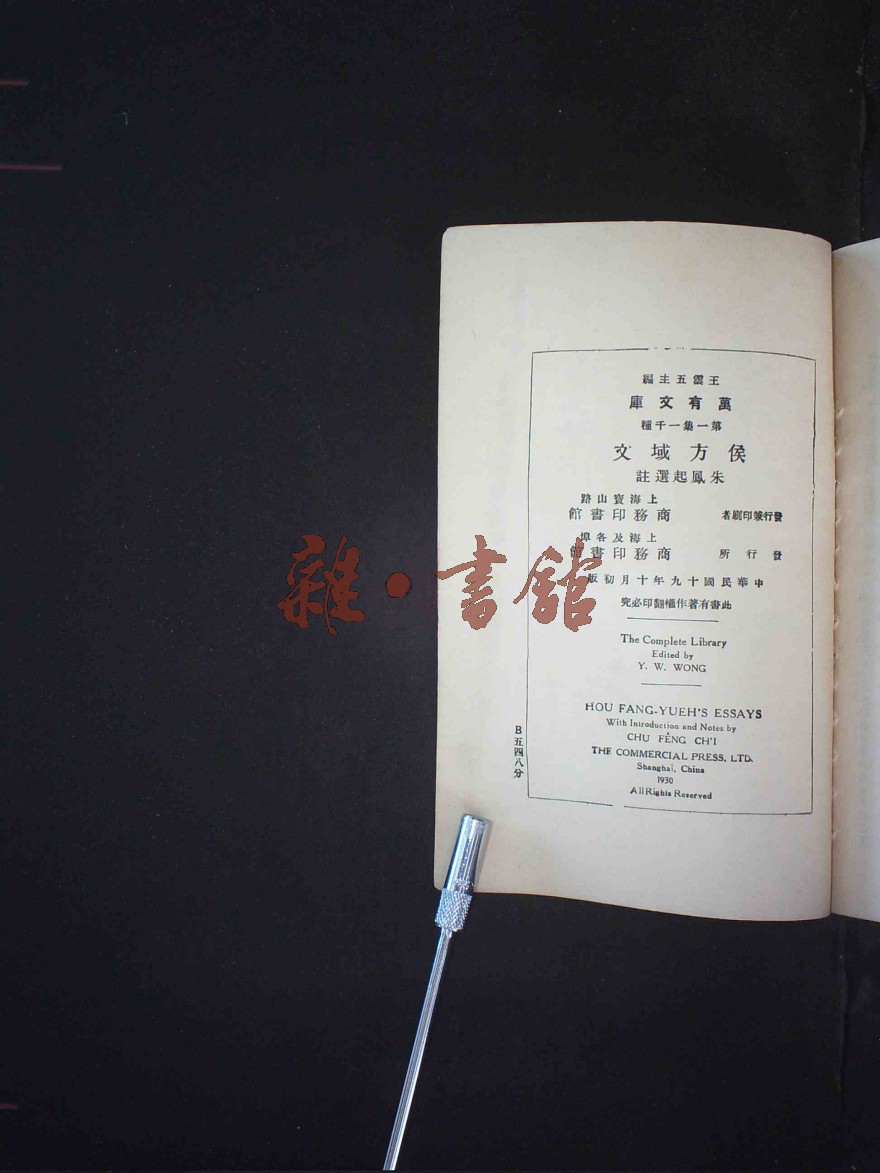 王雲五主編
萬有文庫
第一集一千種
侯方域文
朱鳳起選註
上海寶山路
發行兼印刷者 商務印書館
上海及各埠
發行所 商務印書館
中華民國十九年十月初版
此書有著作權翻印必究
The Complete Library
Edited by
Y. W. WONG
HOU FANG-YUEH'S ESSAYS
With Introduction and Notes by
CHU FÊNG CH'I
THE COMMERCIAL PRESS, LTD.
Shanghai, China
1930
All Rights Reserved
B五四八分
雜·書館